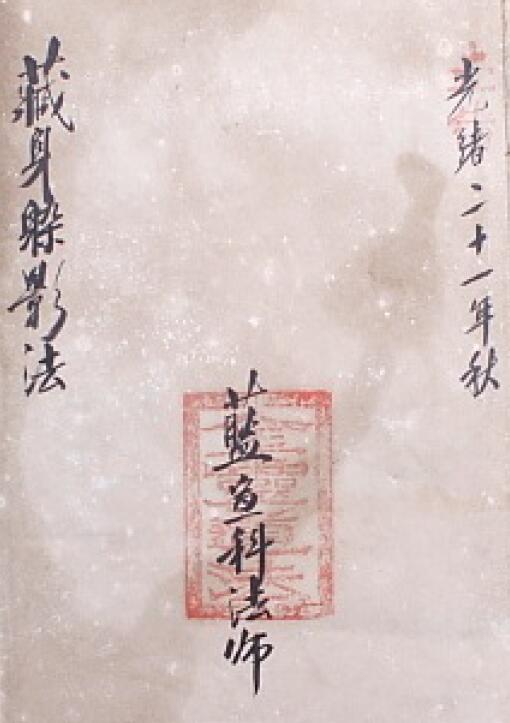 光緒二十一年秋
藍宣科法师
藏身躲影法